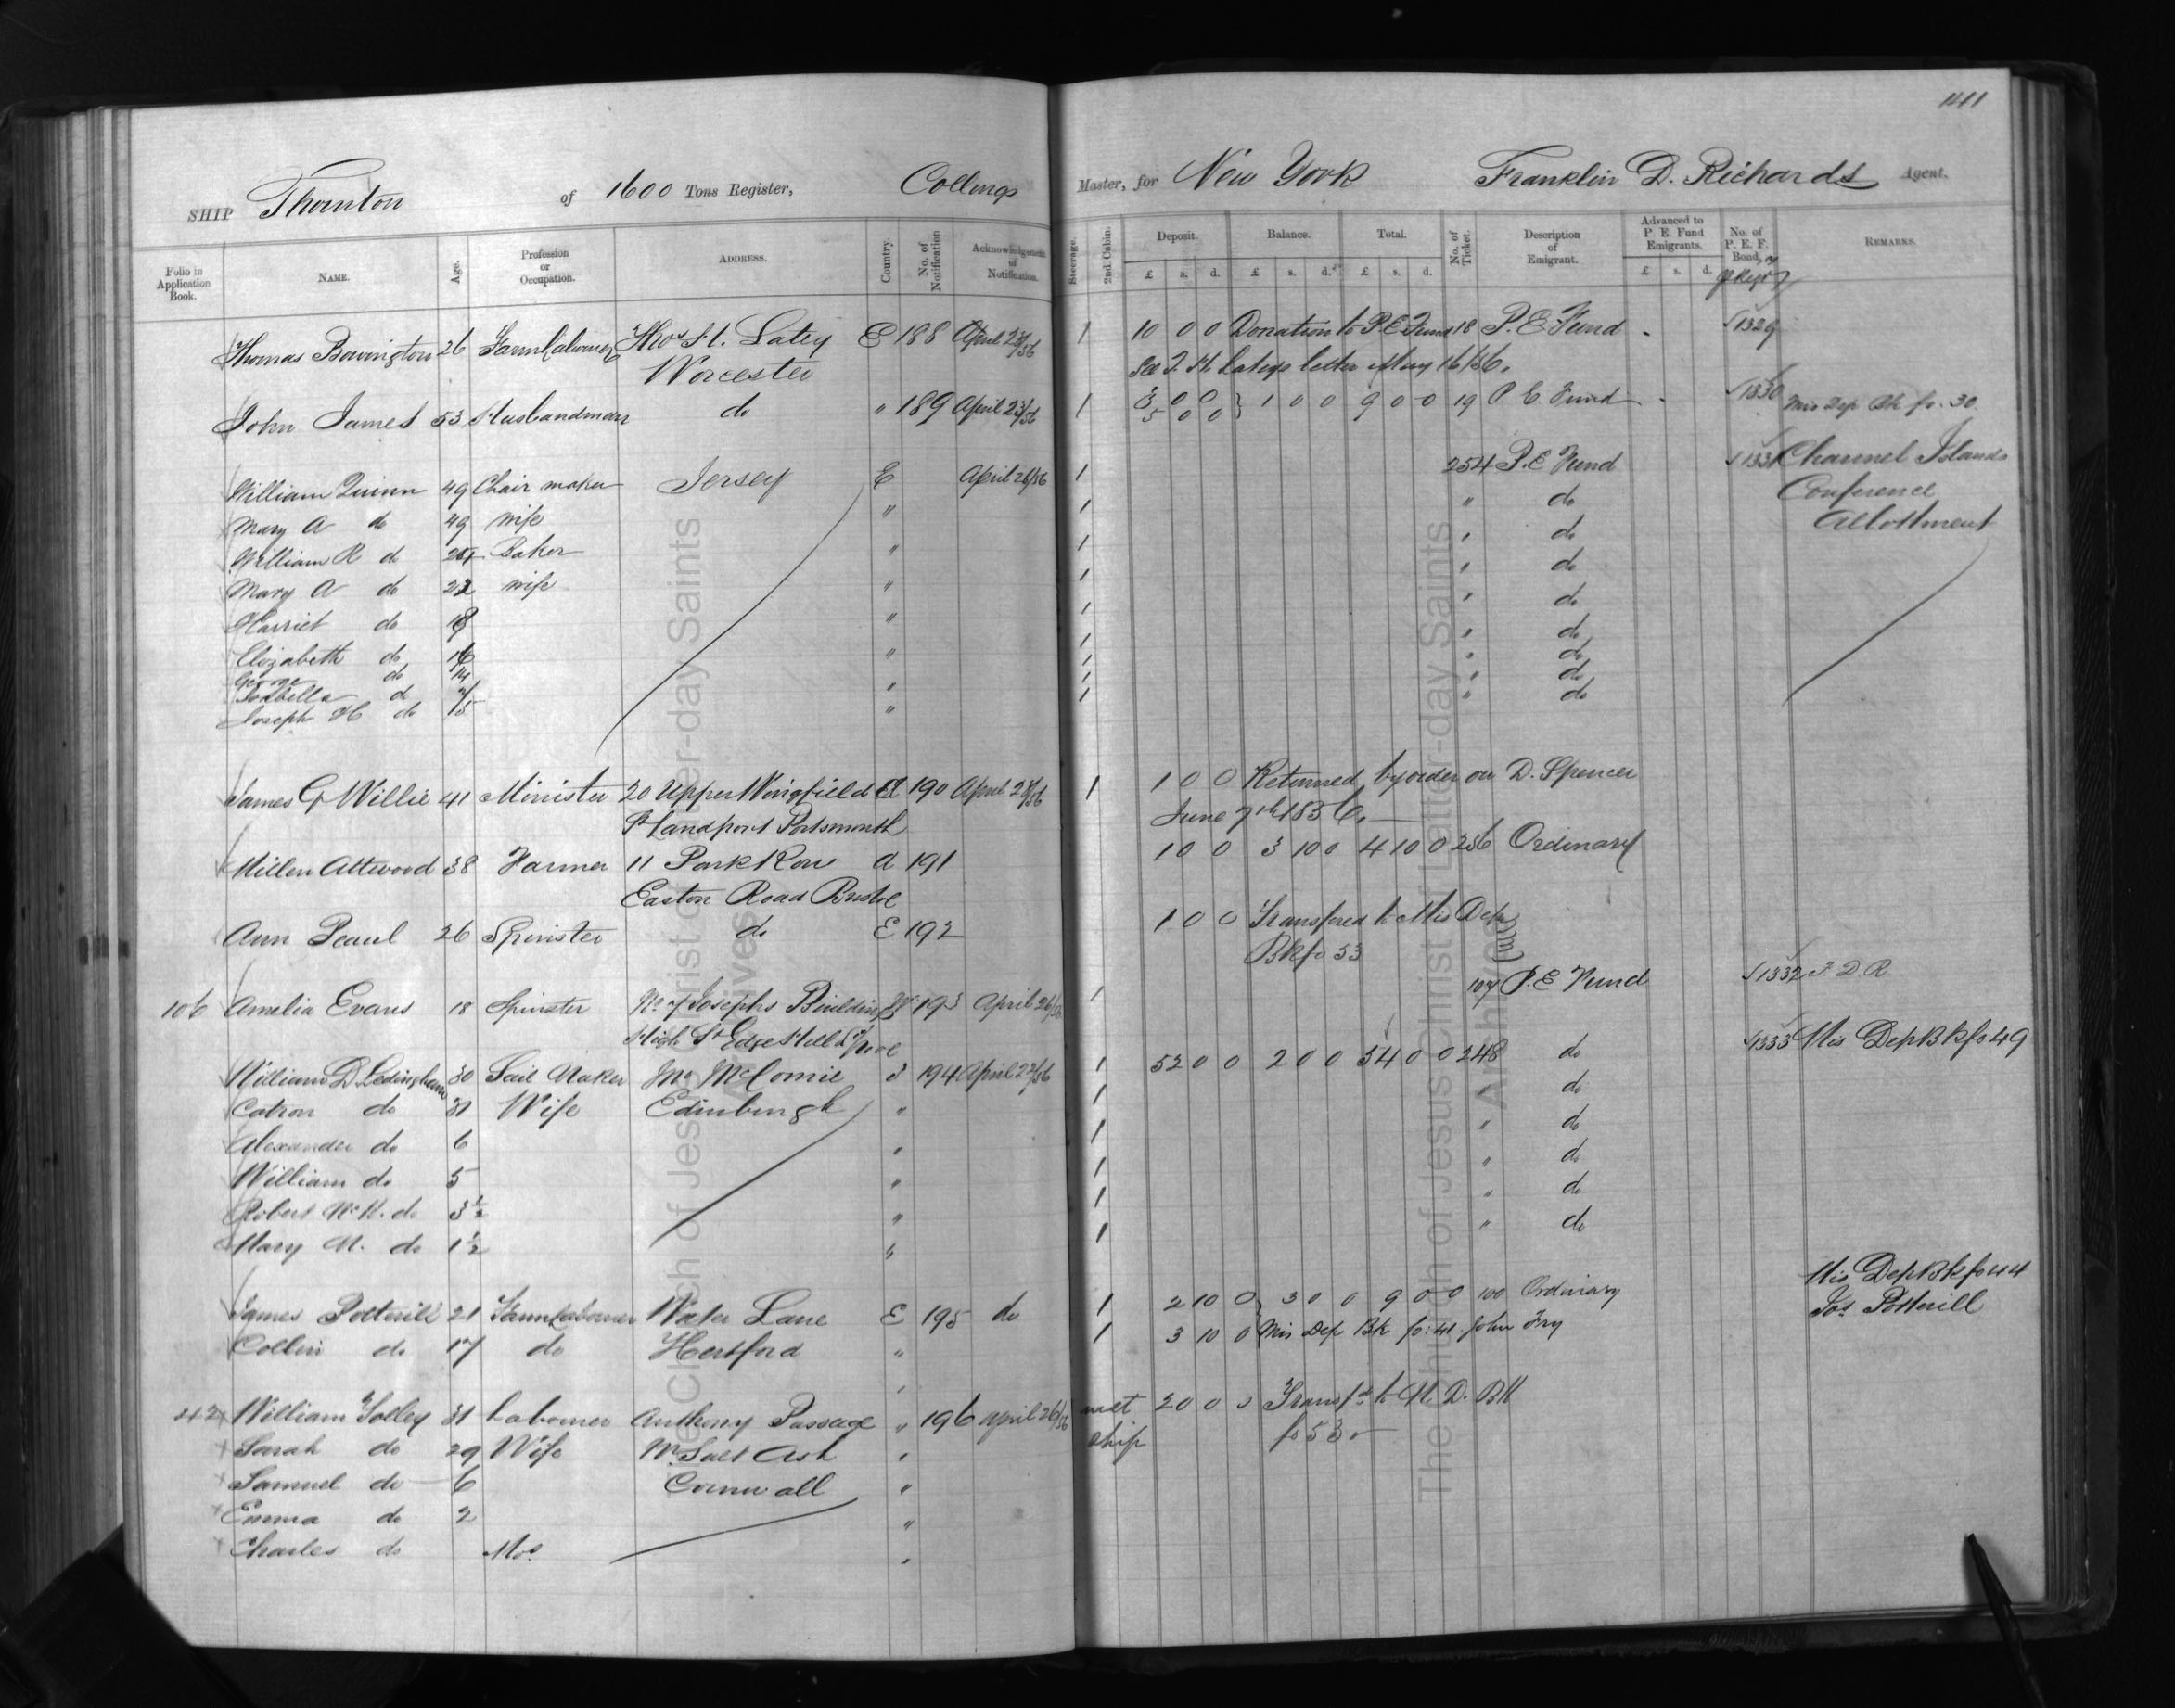 141
SHIP Thornton of 1600 Tons Register, Collings Master, for New York Franklin D. Richards Agent.
Folio in Application Book. NAME. Age. Profession or Occupation. ADDRESS. Country. No. of Notification Acknowledgments of Notification. Steerage. 2nd Cabin. Deposit. Balance. Total. No. of Ticket. Description of Emigrant. Advanced to P. E. Fund Emigrants. No. of P. E. F. Bond, REMARKS.
£ s. d. £ s. d. £ s. d. £ s. d.
Thomas Bavington 26 Farm Labourer Thos. H. Latey E 188 April 23/56 1 10 0 0 Donation to P.E. Fund 18 P. E. Fund 1329
Worcester See T. H. Lateys letter May 16/56.
John James 53 Husbandman do " 189 April 23/56 1 3 0 0 } 1 0 0 9 0 0 19 P. E. Fund 1330 Mis Dep Bk fo. 30
5 0 0
William Quinn 49 Chair maker Jersey E April 26/56 1 254 P. E Fund 1331 Channel Islands
Mary A do 49 wife " 1 " do Conference
William R do Baker " 1 " do Allottment
Mary A do wife " 1 " do
Harriet do 18 " 1 " do
Elizabeth do 16 " 1 " do
George do 14 1 " do
Isabella do " 1 " do
Joseph H do " 1 " do
James G Willie 41 Minister 20 Upper Wingfield St 190 April 1 1 0 0 Returned by order on D. Spencer
Landport Portsmouth June 7th 1856.
Millen Attwood 38 Farmer 11 Park Row 191 1 0 0 3 10 0 4 10 0 256 Ordinary
Easton Road Bristol
Ann Pearl 26 Spinster do E 192 1 0 0 Transfered to Mis Dep
Bk fo 53
106 Amelia Evans 18 Spinster No 7 Josephs Buildings 193 April 26/56 1 107 P. E Fund 1332 F. D. R.
High St Edge Hill L'pool
William D Ledingham 30 Sail Maker Jno McComie S 194 April 22/56 1 52 0 0 2 0 0 54 0 0 248 do 1333 Mis Dep Bk fo 49
Catron do 31 Wife Edinburgh " 1 do
Alexander do 6 " 1 " do
William do 5 " 1 " do
Robert do 3½ " 1 " do
Mary M. do 1½ " 1 " do
Mis Dep Bk fo 44
James Potterill 21 Farm Labourer Water Lane E 195 do 1 2 10 0 } 3 0 0 9 0 0 100 Ordinary Jos Potterill
Collin do 17 do Hertford " 1 3 10 0 Mis Dep Bk fo: 41 John Fry
242 William Tolley 31 Labourer Anthony Passage " 196 April 26/56 next 2 0 0 0 Transfd to M. D. BK
Sarah do 29 Wife Nr Salt Ash " ship fo 53
Samuel do 6 Cornwall "
Emma do 2 "
Charles do Mos "
The Church of Jesus Christ of Latter-day Saints
Archives
The Church of Jesus Christ of Latter-day Saints
Archives